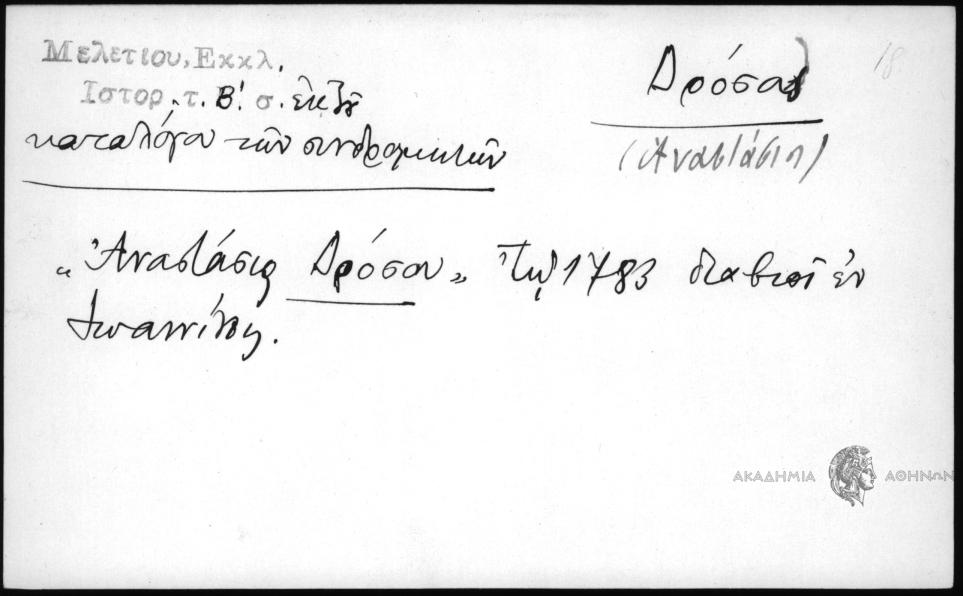 Μελετίου, Εκκλ.
Ιστορ. τ. Β! σ. ἐκ τοῦ
καταλόγου τῶν συνδρομητῶν
Δρόσος
(Ἀναστάσιος)
18
„Ἀναστάσιος Δρόσου" Τῷ 1783 διαβιοῖ ἐν
Ἰωαννίνοις.
ΑΚΑΔΗΜΙΑ ΑΘΗΝΩΝ